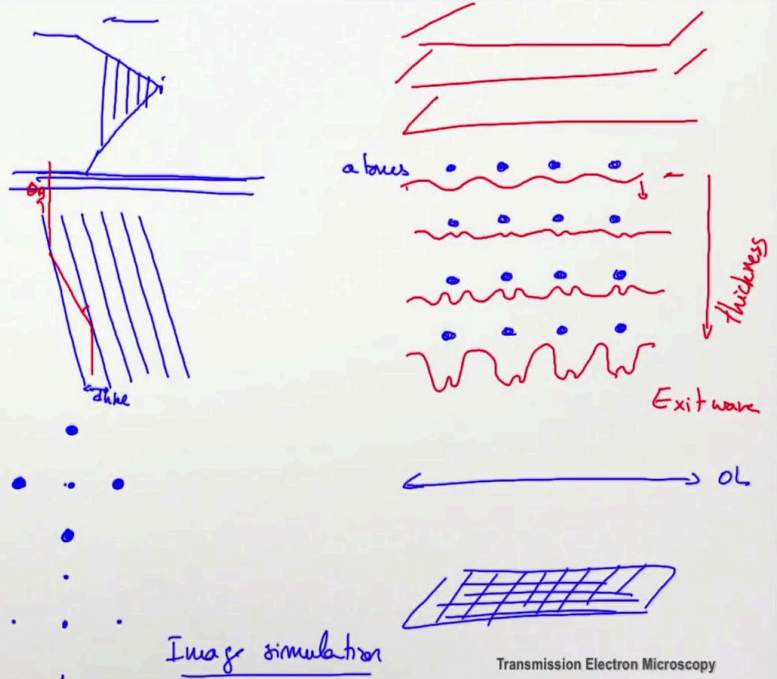 atoms
thickness
Exit wave
dhkl
OL
Image simulation
Transmission Electron Microscopy